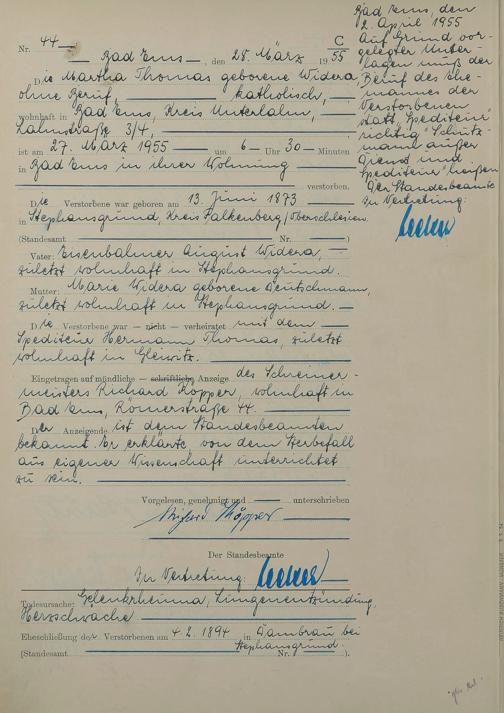 Nr. 44
C
Bad Ems, den 28. März 1955
Die Martha Thomas geborene Widera,
ohne Beruf, katholisch,
wohnhaft in Bad Ems, Kreis Unterlahn,
Lahnstraße 3/4,
ist am 27. März 1955 um 6 Uhr 30 Minuten
in Bad Ems in ihrer Wohnung
verstorben.
Die Verstorbene war geboren am 13. Juni 1873
in Stephansgrund, Kreis Falkenberg/Oberschlesien
(Standesamt Nr. )
Vater: Eisenbahner August Widera,
zuletzt wohnhaft in Stephansgrund.
Mutter: Marie Widera geborene Deutschmann,
zuletzt wohnhaft in Stephansgrund.
Die Verstorbene war — nicht — verheiratet mit dem
Spediteur Hermann Thomas, zuletzt
wohnhaft in Gleiwitz.
Eingetragen auf mündliche — schriftliche Anzeige des Schreiner-
meisters Richard Köpper, wohnhaft in
Bad Ems, Römerstraße 44.
Der Anzeigende ist dem Standesbeamten
bekannt. Er erklärte, von dem Sterbefall
aus eigener Wissenschaft unterrichtet
zu sein.
Vorgelesen, genehmigt und unterschrieben
Richard Köpper
Der Standesbeamte
In Vertretung:
Todesursache: Gelenkrheuma, Lungenentzündung,
Herzschwäche
Eheschließung der Verstorbenen am 4.2.1894 in Dambrau bei
Stephansgrund.
(Standesamt Nr. ).
Bad Ems, den
2. April 1955
Auf Grund vor-
gelegter Unter-
lagen muß der
Beruf des Ehe-
mannes der
Verstorbenen
statt "Spediteur"
richtig "Schutz-
mann außer
Dienst und
Spediteur" heißen
Der Standesbeamte
In Vertretung: